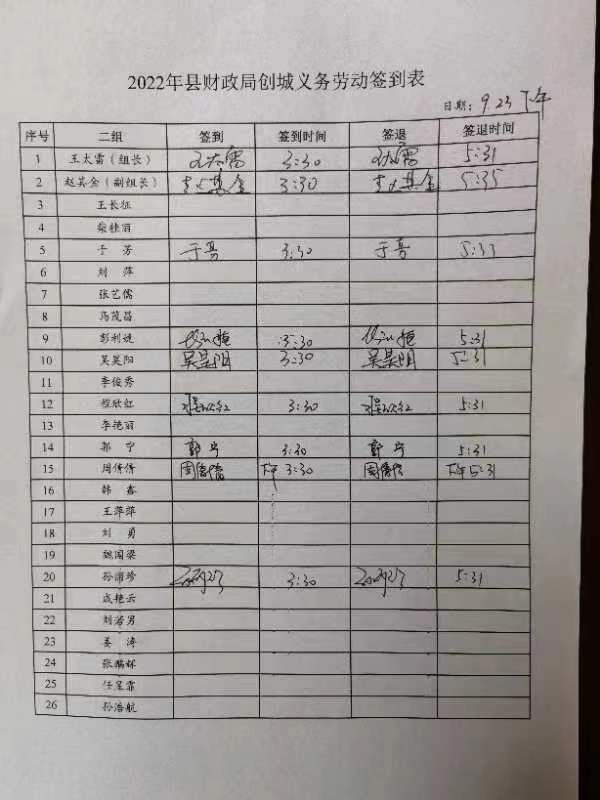 2022年县财政局创城义务劳动签到表
日期：9.23 下午
序号 二组 签到 签到时间 签退 签退时间
1 王太雷（组长） 王太雷 3:30 王太雷 5:31
2 赵其金（副组长） 赵其金 3:30 赵其金 5:35
3 王长征
4 柴桂丽
5 于 芳 于芳 3:30 于芳 5:33
6 刘 萍
7 张艺儒
8 马茂昌
9 彭利媞 3:30 5:31
10 吴昊阳 吴昊阳 3:30 吴昊阳 5:31
11 李俊秀
12 程欣红 程欣红 3:30 程欣红 5:31
13 李艳丽
14 郭 宁 郭宁 3:30 郭宁 5:31
15 周倩倩 周倩倩 下午 3:30 周倩倩 下午 5:31
16 韩 鑫
17 王萍萍
18 刘 勇
19 魏国梁
20 孙丽珍 3:30 5:31
21 成艳云
22 刘若男
23 姜 涛
24 张
25 任星霏
26 孙浩航